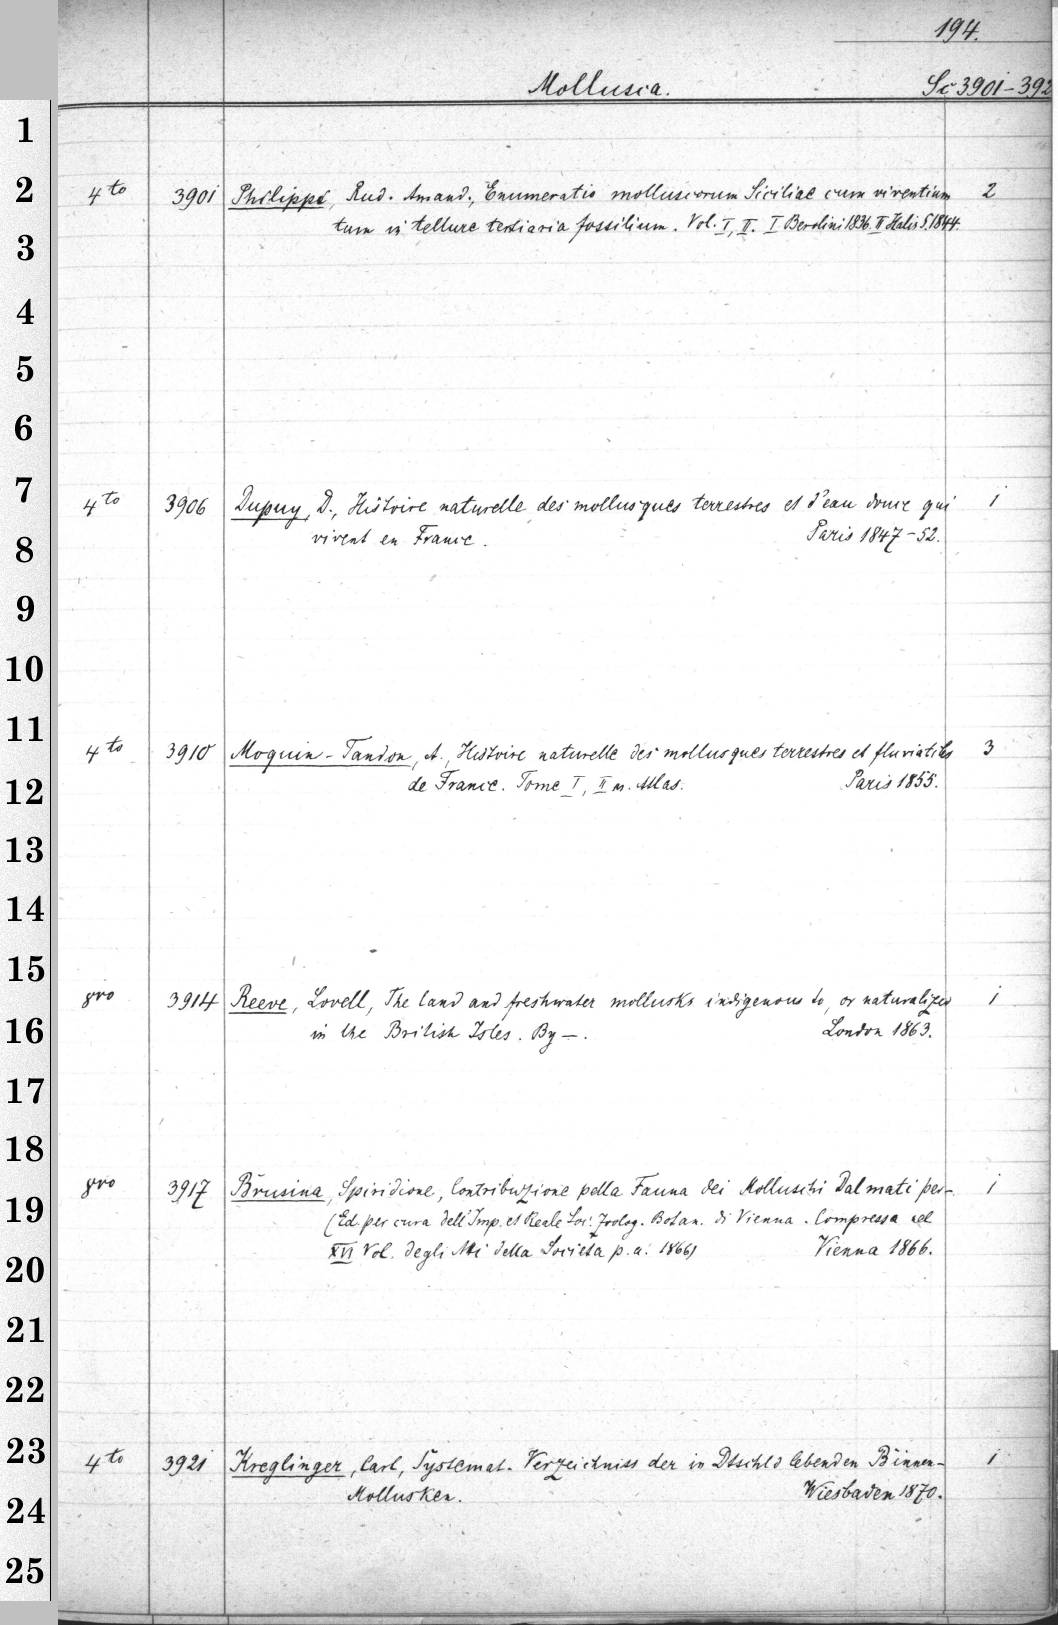 194.
Mollusca. Sc 3901-392
1
2 4to 3901 Philippi, Rud. Amand., Enumeratio molluscorum Siciliae cum viventium 2
tum in tellure tertiaria fossilium. Vol. I, II. I Berolini 1836. II Halis S. 1844.
3
4
5
6
7 4to 3906 Dupuy, D., Histoire naturelle des mollusques terrestres et d'eau douce qui 1
8 vivent en France. Paris 1847-52.
9
10
11 4to 3910 Moquin-Tandon, A., Histoire naturelle des mollusques terrestres et fluviatiles 3
12 de France. Tome I, II m. Atlas. Paris 1855.
13
14
15
8vo 3914 Reeve, Lovell, The land and freshwater mollusks indigenous to, or naturalized 1
16 in the British Isles. By —. London 1863.
17
18
8vo 3917 Brusina, Spiridione, Contribuzione pella Fauna dei Molluschi Dalmati per- 1
19 (Ed. per cura dell' Imp. et Reale Soc. Zoolog. Botan. di Vienna. Compressa nel
XVI Vol. degli Atti della Società p. a. 1866) Vienna 1866.
20
21
22
23 4to 3921 Kreglinger, Carl, Systemat. Verzeichniss der in Dtschld lebenden Binnen- 1
24 Mollusken. Wiesbaden 1870.
25